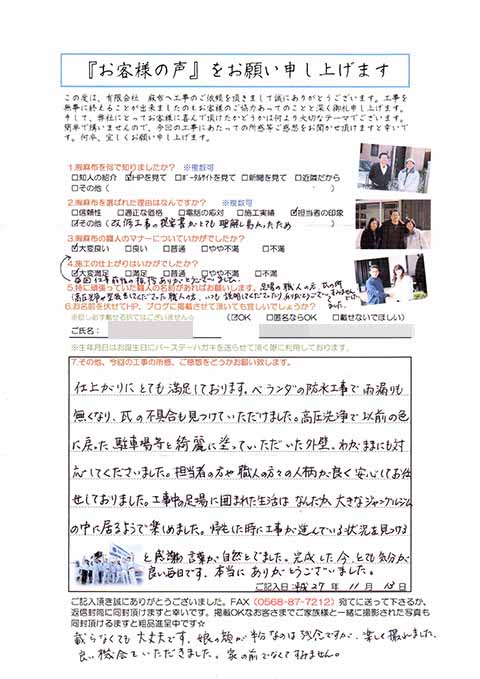 『お客様の声』をお願い申し上げます
この度は、有限会社　麻布へ工事のご依頼を頂きまして誠にありがとうございます。工事を
無事に終えることが出来ましたのもお客様のご協力あってのことと深く御礼申し上げます。
そして、弊社にとってお客様に喜んで頂けたかどうかは何より大切なテーマでございます。
簡単で構いませんので、今回の工事にあたっての所感等ご感想をお聞かせ頂けますと幸いで
す。何卒、宜しくお願い申し上げます。
1.㈲麻布を何で知りましたか？　※複数可
□知人の紹介　☑HPを見て　□ポータルサイトを見て　□新聞を見て　□近隣だから
□その他（　　　）
2.㈲麻布を選ばれた理由はなんですか？　※複数可
□信頼性　□適正な価格　□電話の応対　□施工実績　☑担当者の印象
☑その他（改修工事の提案書がとても理解し易かったため）
3.㈲麻布の職人のマナーについていかがでしたか？
☑大変良い　□良い　□普通　□やや不満　□不満
4.施工の仕上がりいかがでしたか？
☑大変満足　□満足　□普通　□やや不満　□不満
5.特に頑張っていた職人の名前があればお願いします。
6.お名前を伏せてHP、ブログに掲載させて頂いても宜しいでしょうか？
※包み隠さず載せる訳ではございません☆　☑OK　□匿名ならOK　□載せないでほしい）
ご氏名：
※生年月日はお誕生日にバースデーハガキを送らせて頂く際に利用しております。
7.その他、今回の工事の所感、ご感想をどうかお願い致します。
仕上がりにとても満足しております。ベランダの防水工事で雨漏りも
無くなり、瓦の不具合も見つけていただけました。高圧洗浄で以前の色
に戻った駐車場等と綺麗に塗っていただいた外壁。わがままにも対
応してくださいました。担当者の方や職人の方々の人柄が良く安心してお任
せしておりました。工事中の足場に囲まれた生活はなんだか、大きなジャングルジム
の中に居るようで楽しめました。帰宅した時に工事が進んでいる状況を見つける
と感謝の言葉が自然とでました。完成した今、とても気分が
良い毎日です。本当にありがとうございました。
ご記入日：平成27年 11月 13日
ご記入頂き誠にありがとうございました。FAX（0568-87-7212）宛てに送って下さるか、
返信封筒に同封頂けますと幸いです。掲載OKなお客さままでご家族様と一緒に撮影された写真も
同封頂けるますと粗品進呈中です☆
載らなくても大丈夫です。娘の顔が半分なのは残念ですが、楽しく撮れました。
良い機会でいただきました。家の前でなくてすみません。